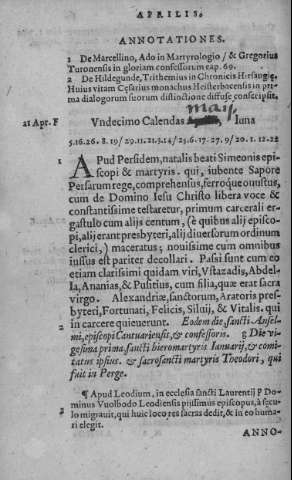 APRILIS.
ANNOTATIONES.
1 De Marcellino, Ado in Martyrologio / & Gregorius
Turonensis in gloriam confessorum cap. 69.
2 De Hildegunde, Trithemius in Chronicis Hirsaugiẹ.
Huius vitam Cęsarius monachus Heisterbocensis in pri
ma dialogorum suorum distinctione diffuse conscipsit.
maij
21 Apr. F Vndecimo Calendas luna
5.16.26.8.19/29.11.21.3.14/25.6.17.27.9/20.1.12.22
1 APud Persidem, natalis beati Simeonis epi-
scopi & martyris. qui, iubente Sapore
Persarum rege, comprehensus, ferroque onustus,
cum de Domino Iesu Christo libera voce &
constantissime testaretur, primum carcerali er-
gastulo cum alijs centum, (è quibus alij episco-
pi, alij erant presbyteri, alij diuersorum ordinum
clerici,) maceratus; nouissime cum omnibus
iussus est pariter decollari. Passi sunt cum eo
etiam clarissimi quidam viri, Vstazadis, Abdel-
la, Ananias, & Pusitius, cum filia, quæ erat sacra
virgo. Alexandriæ, sanctorum, Aratoris pres-
byteri, Fortunati, Felicis, Siluij, & Vitalis. qui
in carcere quieuerunt. Eodem die, sancti Ansel-
mi, episcopi Cantuariensis, & confessoris. g Die vi-
gesima prima, sancti hieromartyris Ianuarij, & comi-
tatus ipsius. & sacrosancti martyris Theodori, qui
fuit in Perge.
¶ Apud Leodium, in ecclesia sancti Laurentij P Do-
2 minus Vuolbodo Leodiensis pijssimus episcopus, à sęcu-
lo migrauit, qui huic loco res sacras dedit, & in eo huma-
ri elegit.
ANNO-